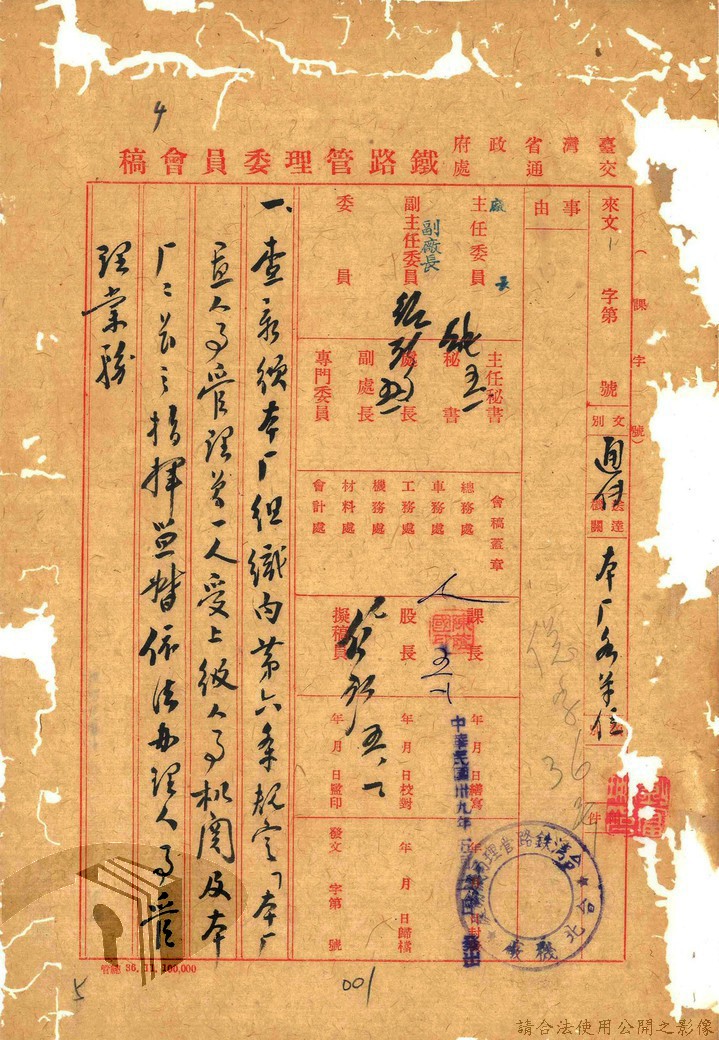 4
臺灣省政府
交通處
鐵路管理委員會稿
(課字 號)
來文 字第 號
文別
通傳
送達機關
本厂各單位
件
事由
主任委員
廠長
副主任委員
副廠長
委員
主任秘書
秘書
處長
副處長
專門委員
會稿蓋章
總務處
車務處
工務處
機務處
材料處
會計處
課長
股長
擬稿員
五、一
年月日繕寫
年月日校對
年月日監印
年月日封發
年月日歸檔
發文 字第 號
中華民國卅九年
台湾鉄路管理
台北機廠
一、查新頒本厂组織內第六条規定「本厂
置人事管理員一人受上級人事机関及本
厂厂长之指揮监督依法办理人事管
理業務
管總 36. 11. 100,000
001
5
請合法使用公開之影像